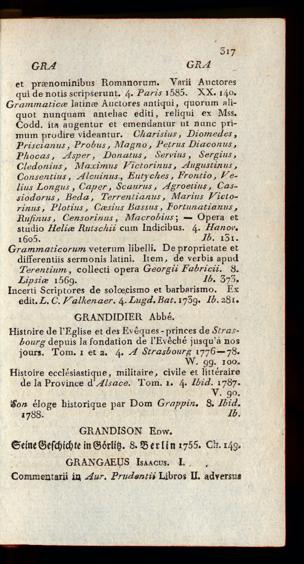 317
GRA GRA
et prænominibus Romanorum. Varii Auctores
qui de notis scripserunt. 4. Paris 1585. XX. 140.
Grammaticæ latinæ Auctores antiqui, quorum ali-
quot nunquam antehac editi, reliqui ex Mss.
Codd. ita augentur et emendantur ut nunc pri-
mum prodire videantur. Charisius, Diomedes,
Priscianus, Probus, Magno, Petrus Diaconus,
Phocas, Asper, Donatus, Servius, Sergius,
Cledonius, Maximus Victorinus, Augustinus,
Consentius, Alcuinus, Eutyches, Frontio, Ve-
lius Longus, Caper, Scaurus, Agroetius, Cas-
siodorus, Beda, Terrentianus, Marius Victo-
rinus, Plotius, Cæsius Bassus, Fortunatianus,
Rufinus, Censorinus, Macrobius; — Opera et
studio Heliæ Rutschii cum Indicibus. 4. Hanov.
1605. Ib. 131.
Grammaticorum veterum libelli. De proprietate et
differentiis sermonis latini. Item, de verbis apud
Terentium, collecti opera Georgii Fabricii. 8.
Lipsiæ 1569. Ib. 373.
Incerti Scriptores de solœcismo et barbarismo. Ex
edit. L. C. Valkenaer. 4. Lugd. Bat. 1739. Ib. 281.
GRANDIDIER Abbé.
Histoire de l'Eglise et des Evêques-princes de Stras-
bourg depuis la fondation de l'Evêché jusquà nos
jours. Tom. 1 et 2. 4. A Strasbourg 1776—78.
W. 99. 100.
Histoire ecclésiastique, militaire, civile et littéraire
de la Province d'Alsace. Tom. 1. 4. Ibid. 1787.
V. 90.
Son éloge historique par Dom Grappin. 8. Ibid.
1788. Ib.
GRANDISON Edw.
Seine Geschichte in Görlitz. 8. Berlin 1755. Ch. 149.
GRANGAEUS Isaacus. I.
Commentarii in Aur. Prudentii Libros II. adversus